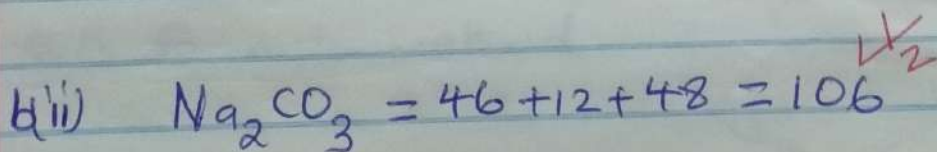 b(ii) Na₂CO₃ = 46+12+48 = 106 ✓½